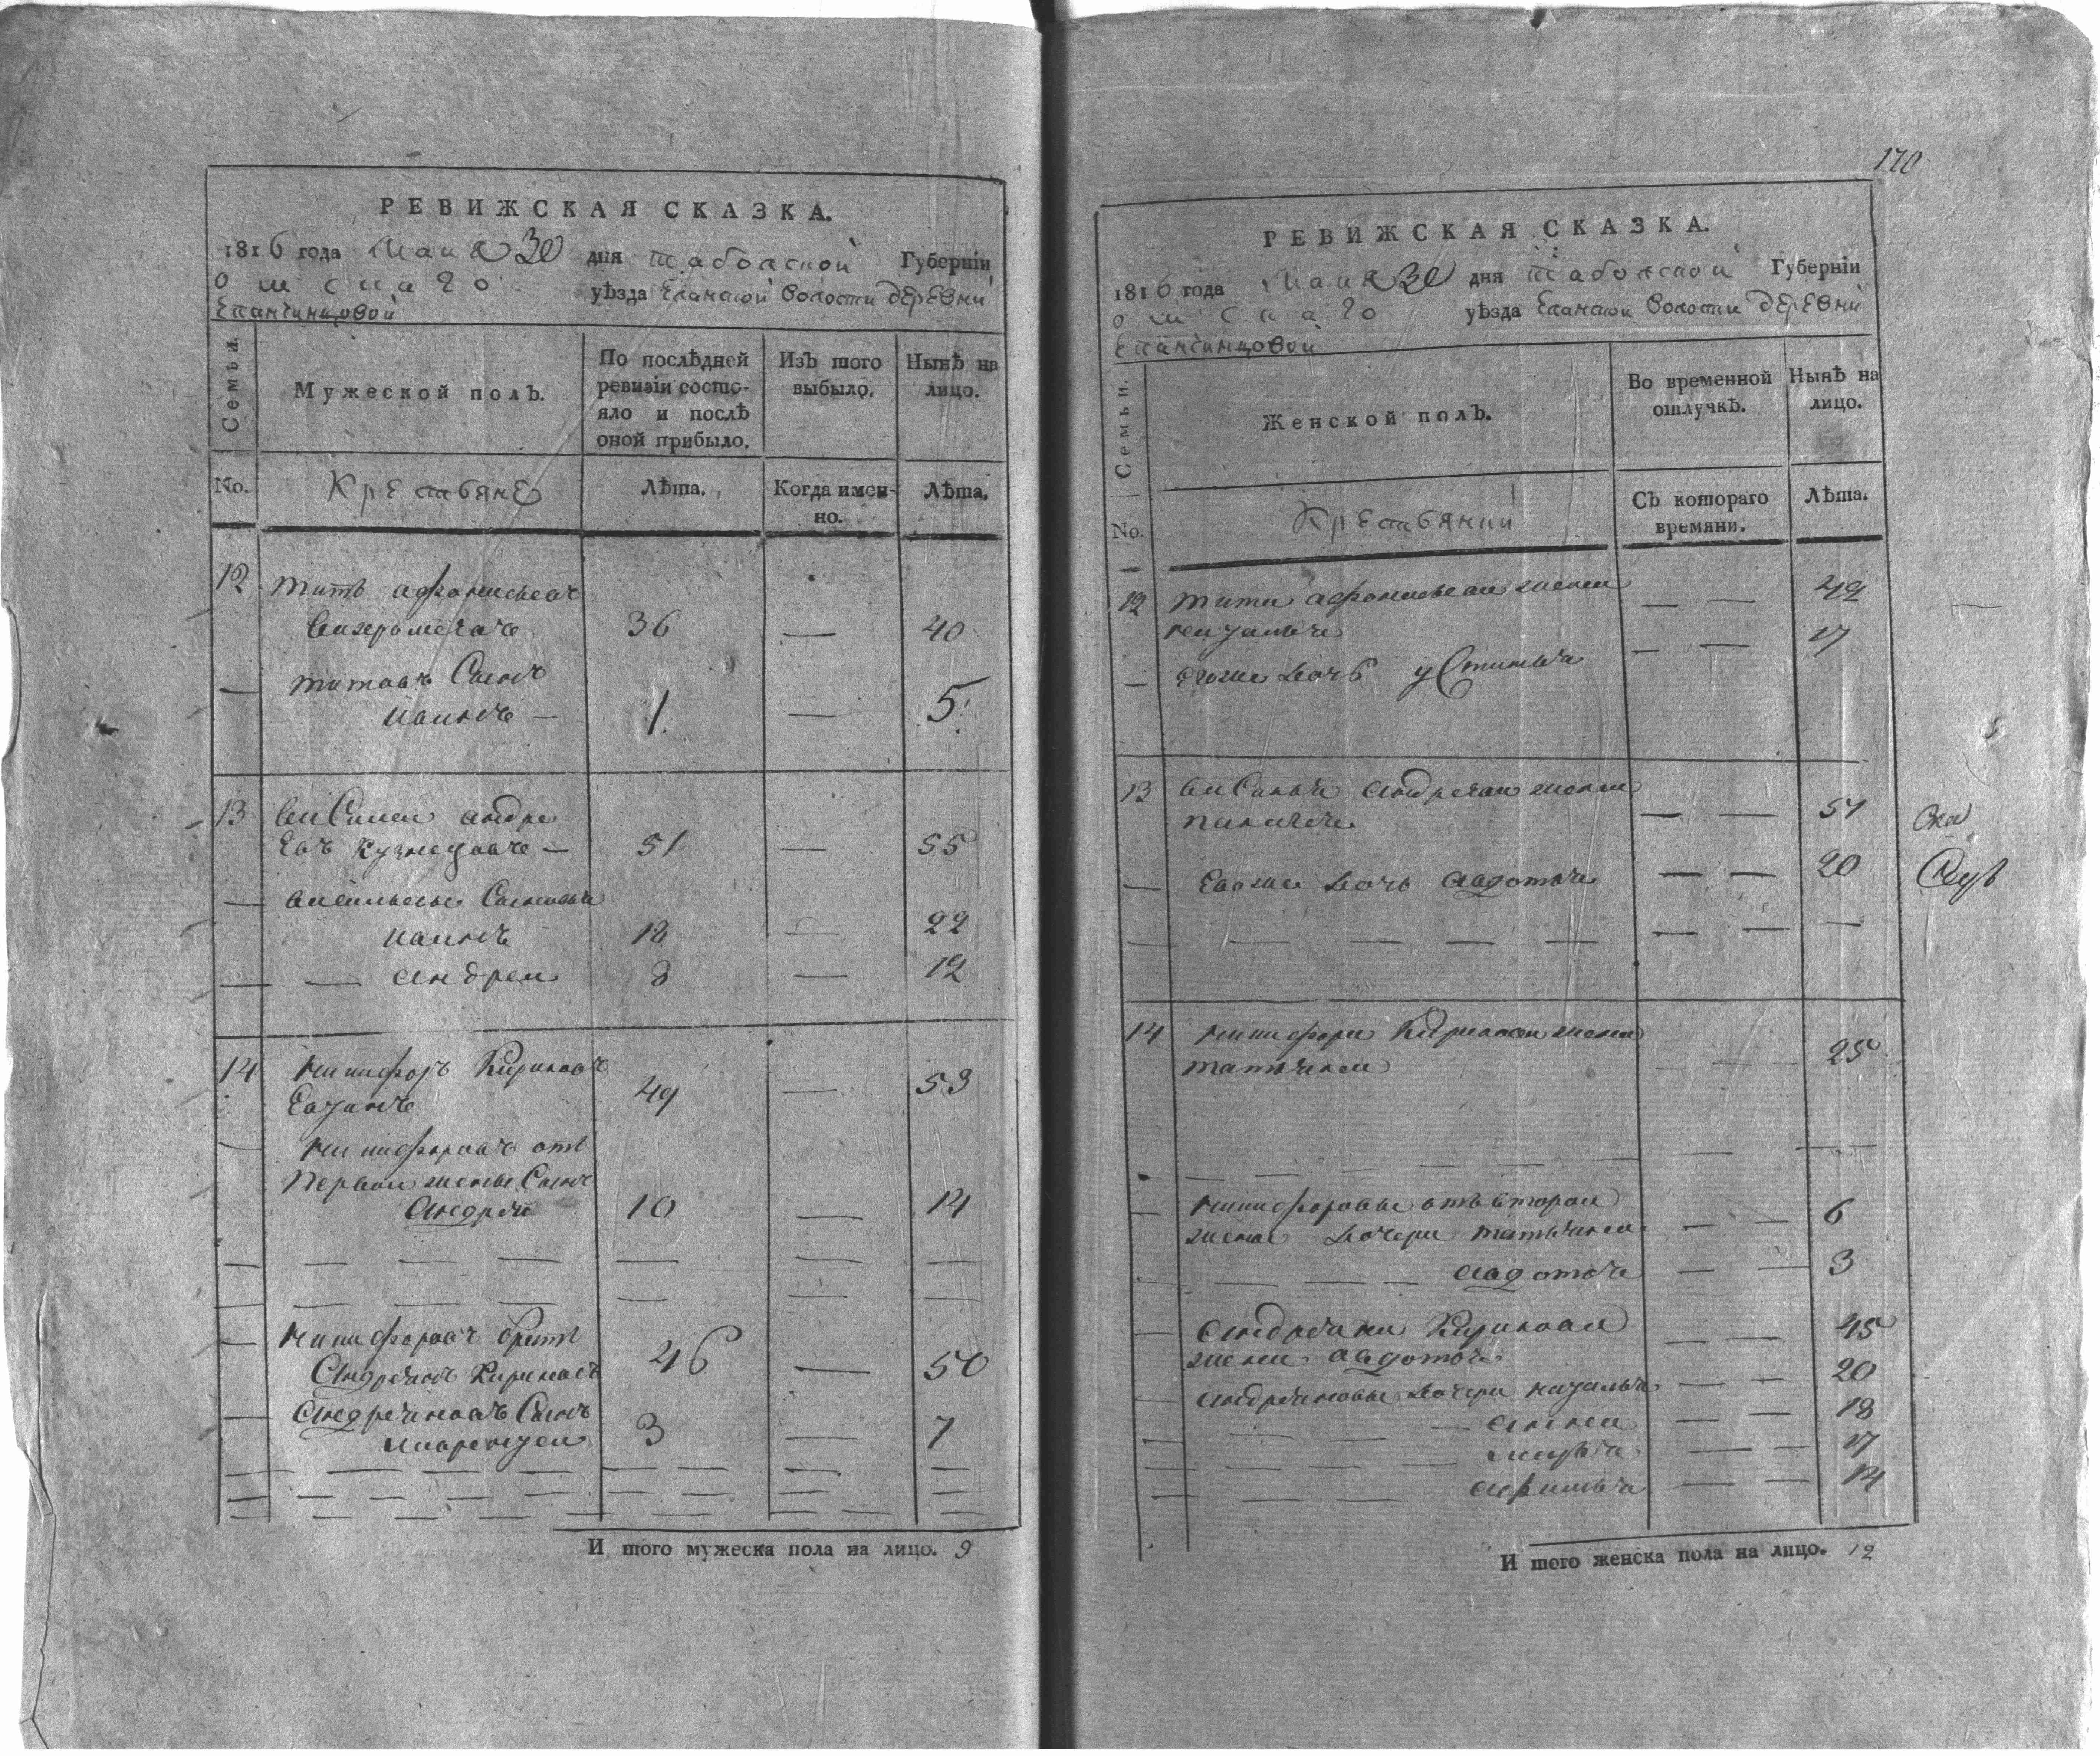 РЕВИЖСКАЯ СКАЗКА.
1816 года Маия 30 дня Таболской Губерніи
Омскаго уѣзда Еланской Волости деревни
Епанчинцовой
Семьи.
Мужеской полъ.
По послѣдней ревизіи состояло и послѣ оной прибыло.
Изъ того выбыло.
Нынѣ на лицо.
No.
Крестьяне
Лѣта.
Когда именно.
Лѣта.
12 Титъ афонасьевъ
36 — 40
— титовъ Сынъ
иванъ — 1. — 5.
13 василей андре
евъ Кузнецовъ — 51 — 55
— васильевы Сыновья
иванъ 18 — 22
— — андрей 8 — 12
14 никифоръ Кириловъ
49 — 53
— никифоровъ отъ
первой жены Сынъ
андрей 10 — 14
— никифоровъ братъ
андреянъ Кириловъ 46 — 50
— андреяновъ Сынъ
лаврентей 3 — 7
И того мужеска пола на лицо. 9
170
РЕВИЖСКАЯ СКАЗКА.
1816 года Маия 30 дня Таболской Губерніи
Омскаго уѣзда Еланской Волости деревни
Епанчинцовой
Семьи.
Женской полъ.
Во временной отлучкѣ.
Нынѣ на лицо.
No.
Крестьянки
Съ котораго времяни.
Лѣта.
12 тита афонасьева жена — — 42
— — 17
— егоже дочь устинья
13 василья андреева жена
пелагея — — 51
— Евоже дочь авдотья — — 20
14 никифора Кирилова жена
татьяна — — 25
— никифоровы отъ второй
жены дочери татьяна — — 6
авдотья — — 3
— андреяна Кирилова — — 45
жена авдотья
андреяновы дочери наталья — — 20
— анна — — 18
марья — — 17
афимья — — 14
И того женска пола на лицо. 12